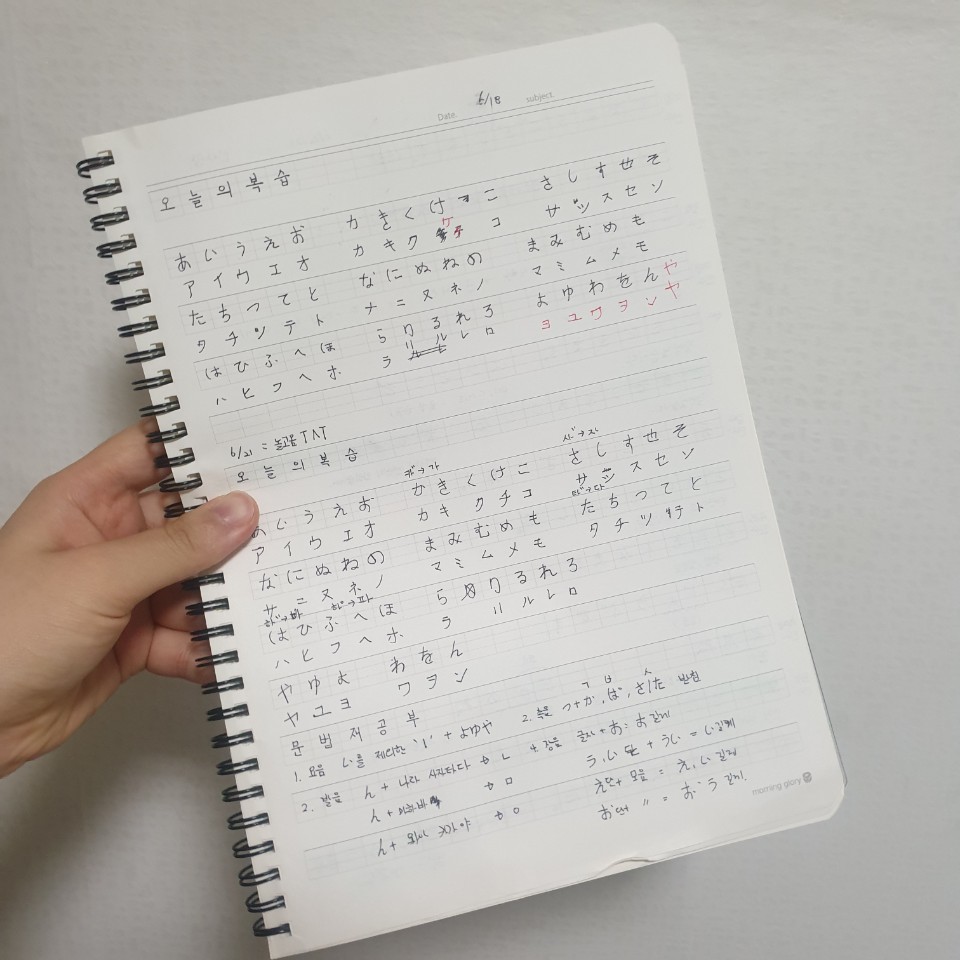 Date. 6/18 subject.
오늘의 복습
あいうえお かきくけこ さしすせそ
アイウエオ カキクケコ サシスセソ
たちつてと なにぬねの まみむめも
タチツテト ナニヌネノ マミムメモ
はひふへほ らりるれろ よゆわをんや
ハヒフヘホ ラリルレロ ヨユワヲンヤ
6/21 = 놀고옴 TAT
오늘의 복습
が→가 ざ→자
あいうえお かきくけこ さしすせそ
アイウエオ カキクチコ サシスセン
だ→다
なにぬねの まみむめも たちつてと
サニヌネノ マミムメモ タチツテト
ば→바 ぱ→파
はひふへほ らりるれろ
ハヒフヘホ ラリルレロ
やゆよ わをん
ヤユヨ ワヲン
문법재공부
1. 요음 い를 제외한 'ㅣ' + よゆや 2. 촉음 つ+か, ぱ, さ/た 받침
ㄱ ㅂ ㅅ
2. 발음 ん + 나라 사자타다 ⇒ ㄴ 4. 장음 글자+お: お 길게
ん + 마하바 ⇒ ㅁ う, い 단 + うい = い 길게
ん + 와이 가아야 ⇒ ㅇ え단 + 모음 = え, い 길게
お단 〃 = お·う 길게
morning glory